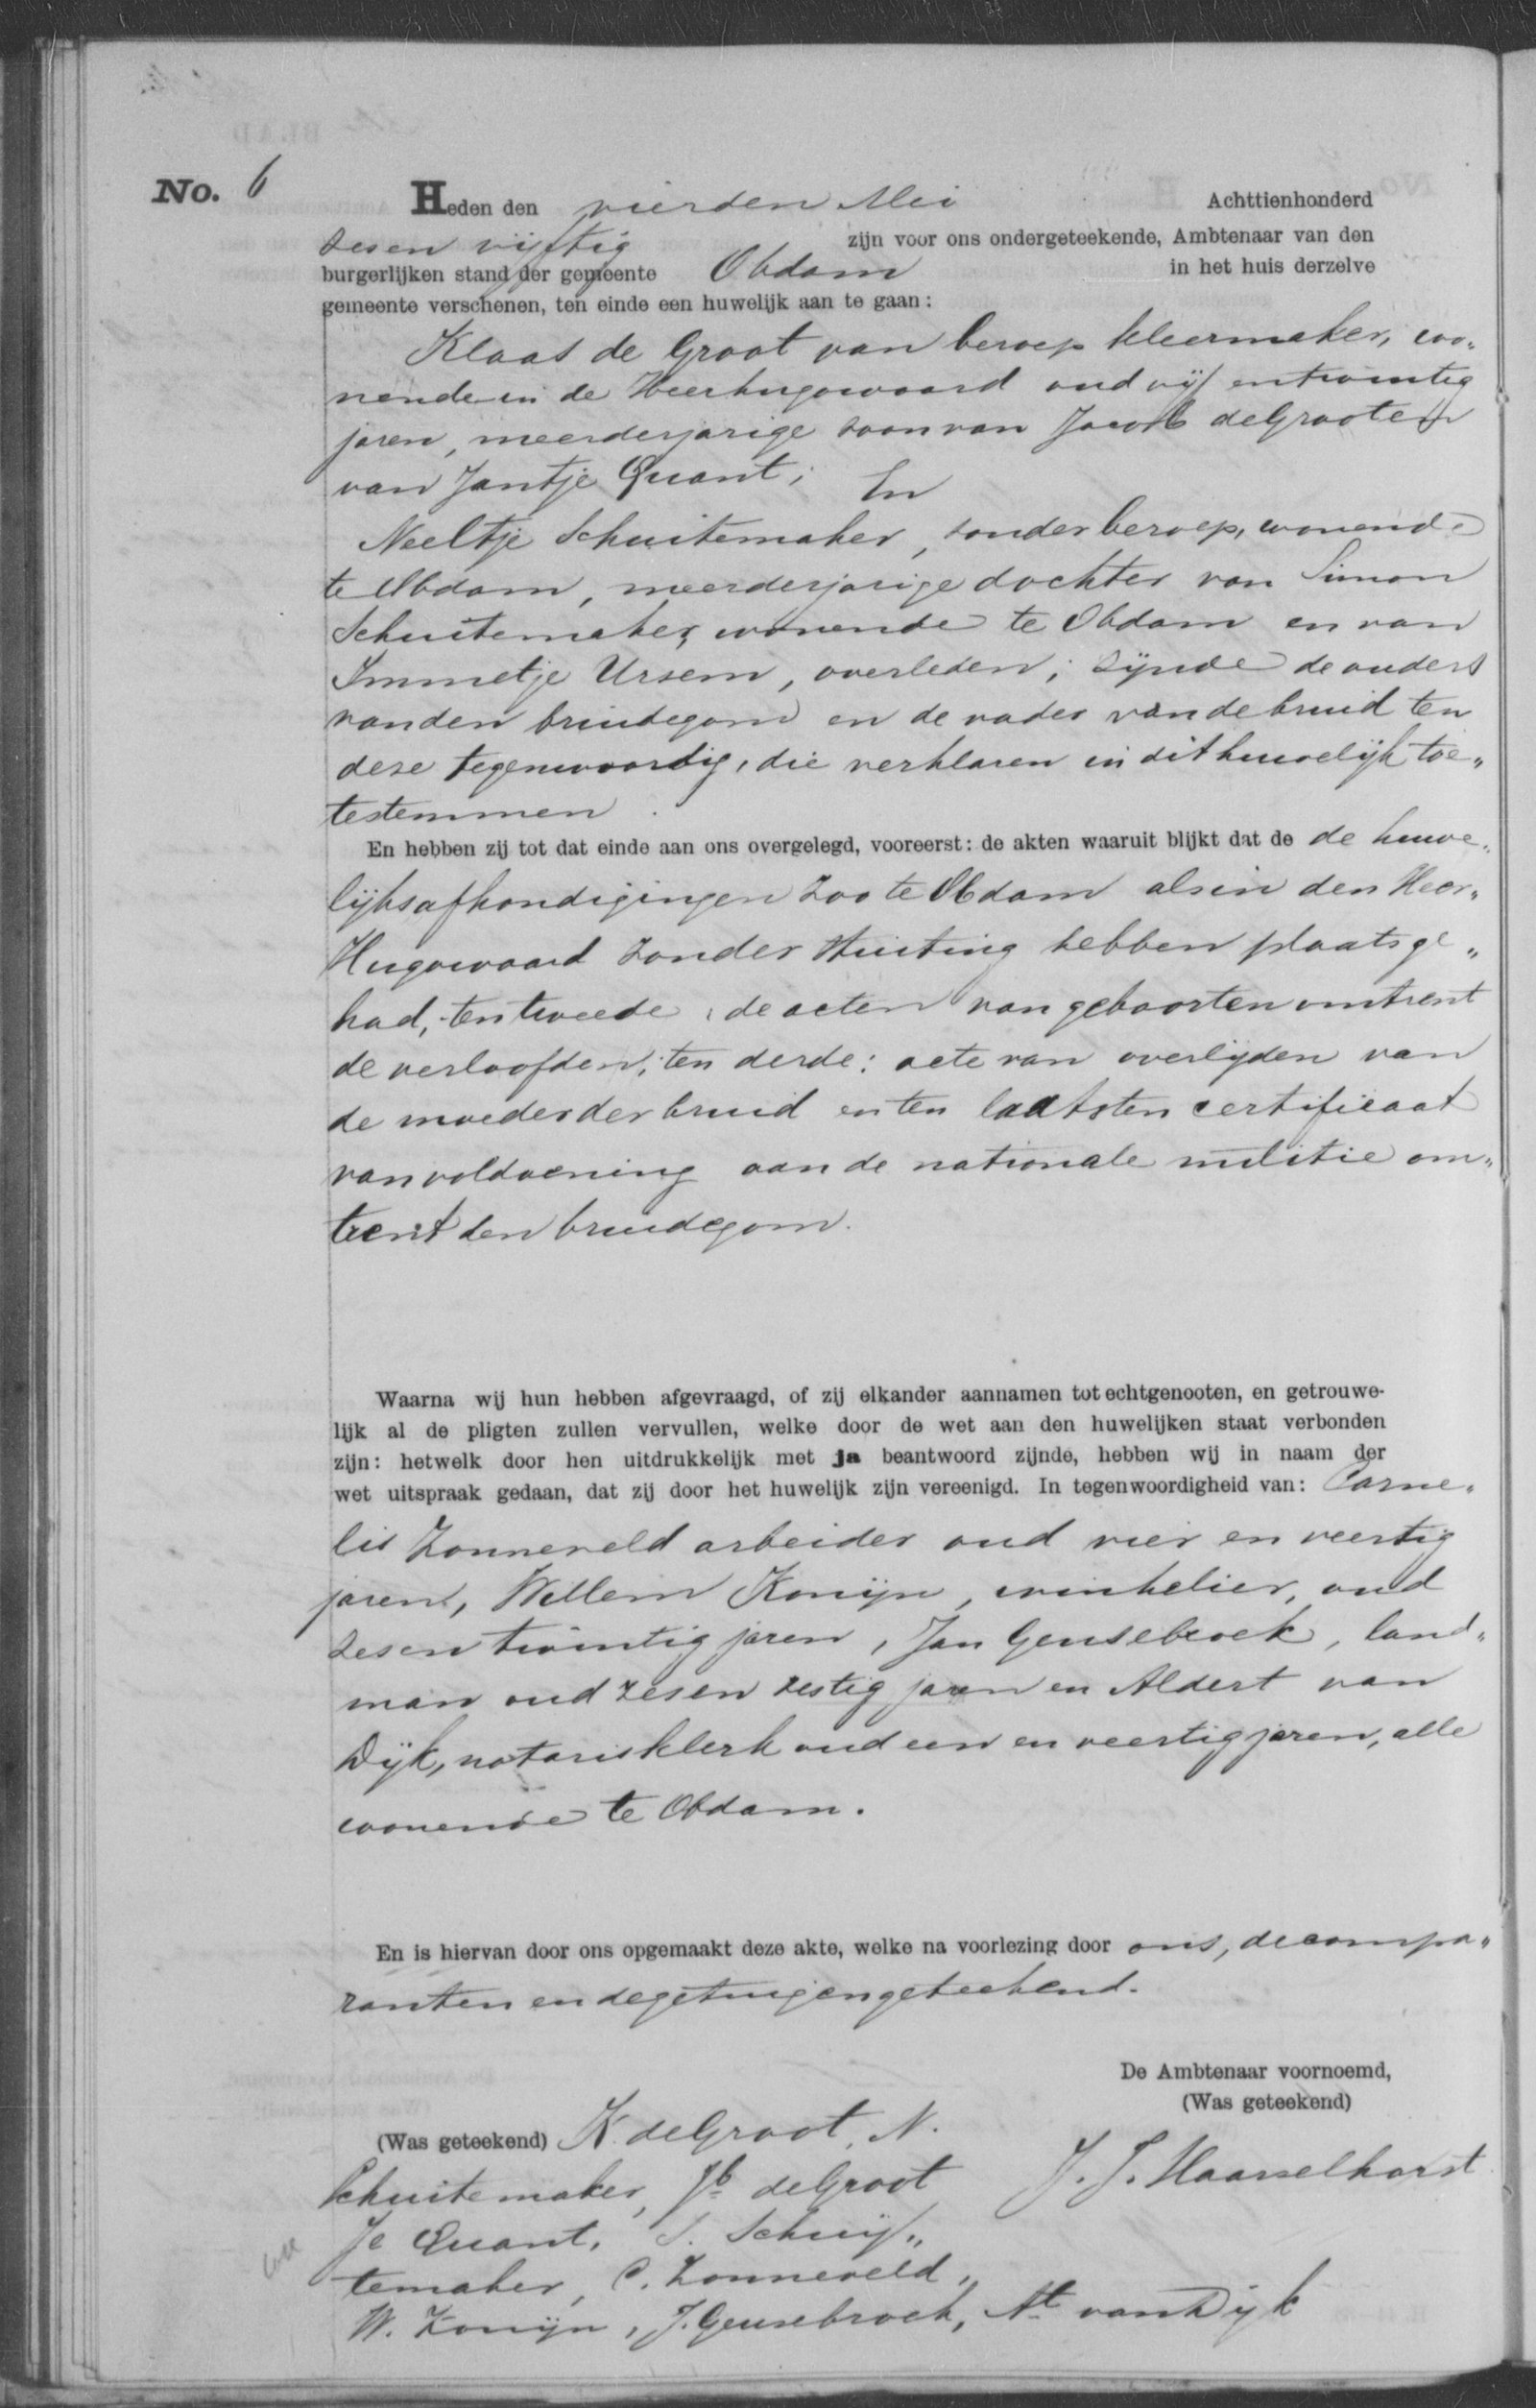 No. 6
Heden den vierden Mei Achttienhonderd
zesen vijftig zijn voor ons ondergeteekende, Ambtenaar van den
burgerlijken stand der gemeente Obdam in het huis derzelve
gemeente verschenen, ten einde een huwelijk aan te gaan:
Klaas de Groot van beroep kleermaker, woo„
nende in de Heerhugowaard oud vijf entwintig
jaren, meerderjarige zoon van Jacob de Groot en
van Jantje Quant; En
Neeltje Schuitemaker, zonder beroep, wonende
te Obdam, meerderjarige dochter van Simon
Schuitemaker, wonende te Obdam en van
Immetje Ursem, overleden; zijnde de ouders
van den bruidegom en de vader van de bruid ten
deze tegenwoordig, die verklaren in dit huwelijk toe„
testemmen.
En hebben zij tot dat einde aan ons overgelegd, vooreerst: de akten waaruit blijkt dat de de huwe„
lijksafkondigingen zoo te Obdam als in den Heer„
Hugowaard zonder stuiting hebben plaatsge„
had, ten tweede: de acten van geboorten omtrent
de verloofden; ten derde: acte van overlijden van
de moeder der bruid en ten laatsten certificaat
van voldoening aan de nationale militie om„
trent den bruidegom.
Waarna wij hun hebben afgevraagd, of zij elkander aannamen tot echtgenooten, en getrouwe-
lijk al de pligten zullen vervullen, welke door de wet aan den huwelijken staat verbonden
zijn: hetwelk door hen uitdrukkelijk met ja beantwoord zijnde, hebben wij in naam der
wet uitspraak gedaan, dat zij door het huwelijk zijn vereenigd. In tegenwoordigheid van: Corne„
lis Zonneveld arbeider oud vier en veertig
jaren, Willem Konijn, winkelier, oud
zesen twintig jaren, Jan Geusebroek, land„
man oud zesen zestig jaren en Aldert van
Dijk, notarisklerk oud een en veertig jaren, alle
wonende te Obdam.
En is hiervan door ons opgemaakt deze akte, welke na voorlezing door ons, de compa„
ranten en de getuigen geteekend.
De Ambtenaar voornoemd,
(Was geteekend)
(Was geteekend) K. de Groot, N.
Schuitemaker, Jb de Groot J. J. Haasselhorst
Je Quant, S. Schuij„
temaker, C. Zonneveld,
W. Konijn, J. Geusebroek, At van Dijk